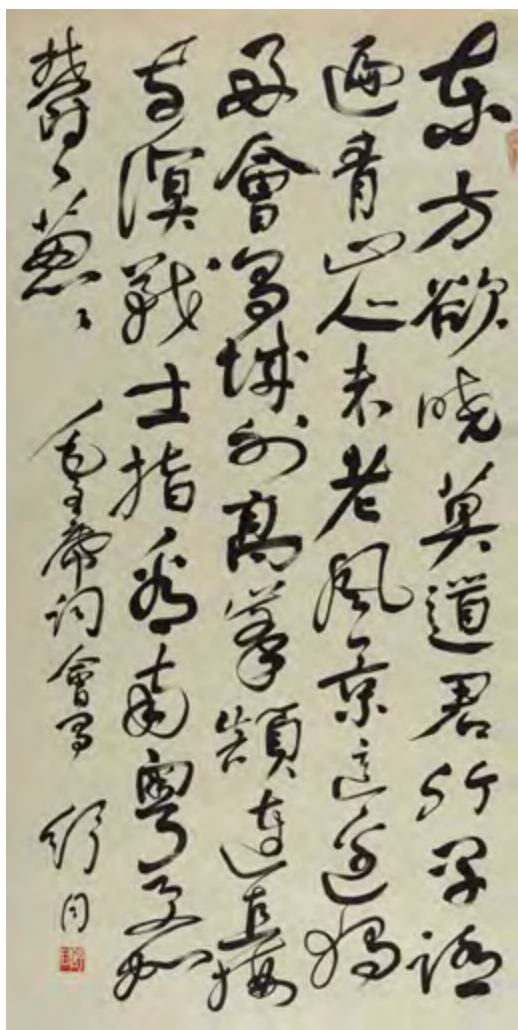 东方欲晓莫道君行早踏
遍青山人未老风景这边独
好會昌城外高峯顛连直接
东溟战士指看南粤更加
鬱々葱々 毛主席词會昌 舒同